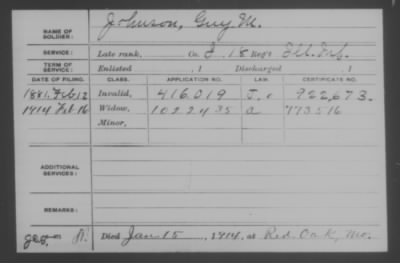 NAME OF SOLDIER: Johnson, Guy M.
SERVICE: Late rank, Co. I, 18 Reg't Ill. Inf.
TERM OF SERVICE: Enlisted , 1 Discharged , 1
DATE OF FILING. CLASS. APPLICATION NO. LAW. CERTIFICATE NO.
1881, Feb. 12 Invalid, 416.019 922,673.
1914 Feb 16 Widow, 1022435 a 773516
Minor,
ADDITIONAL SERVICES:
REMARKS:
Died Jan. 15, 1914, at Red Oak, Mo.